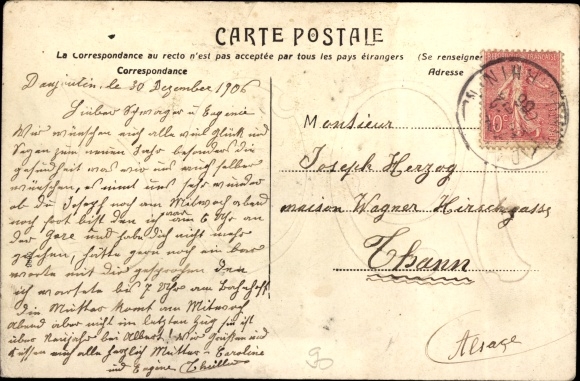 CARTE POSTALE
La Correspondance au recto n'est pas acceptée par tous les pays étrangers (Se renseigner
Correspondance
Adresse
Danjoutin, le 30 Dezember 1906
Lieber Schwager u Eugenie
Wir wünschen euch alle viel Glück und
Segen zum neuen Jahr besonders die
gesundheit was wir uns auch selber
wünschen, es nimt uns sehr wunder
ob du Joseph noch am Mitwoch abend
noch fort bist den ich war um 6 Uhr an
der Gare und habe dich nicht mehr
gesehen, hätte gern noch ein paar
worte mit dir gesprochen den
ich wartete bis 7 Uhr am Bahnhoff.
Die Mutter komt am Mitwoch
Abend aber nicht im letzten Zug sie ist
über Neujahr bei Albert! Wir Grüssen und
Küssen euch alle herzlich Mutter - Caroline
und Eugene
Monsieur
Joseph Herzog
maison Wagner Hirschgasse
Thann
Alsace